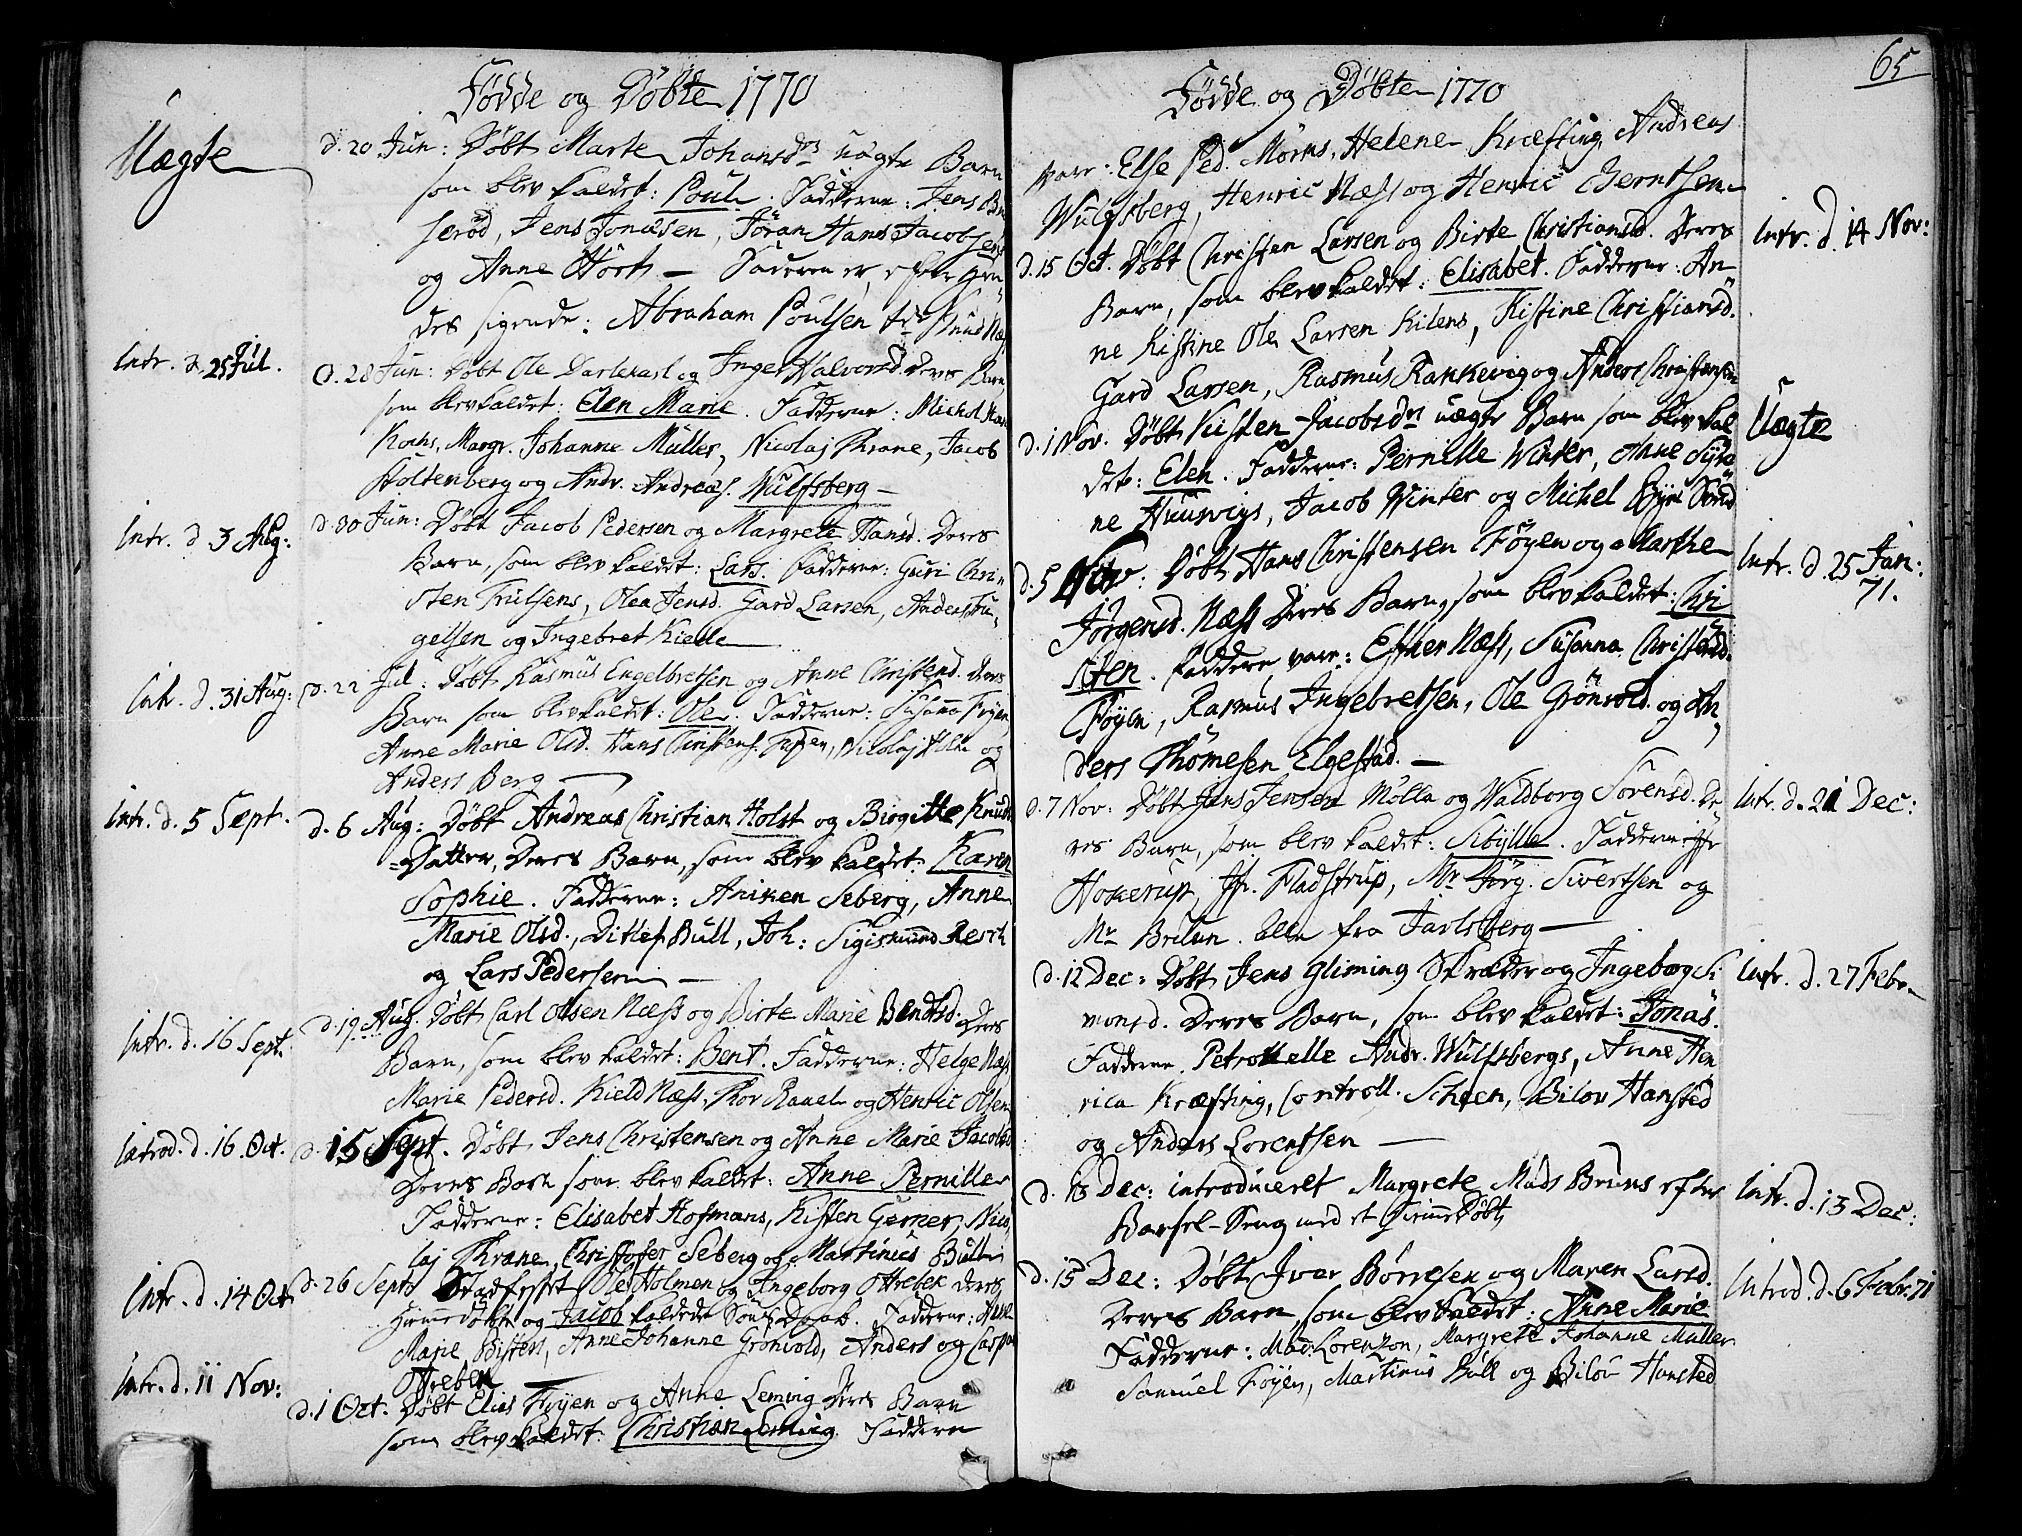 Fødde og Døbte 1770
Uægte
d. 20 Jun: Døbt Marte Johansd. uægte Barn
som blev kaldet: Poul. Fadderne: Jens
Jens Jonasen, Jøran Hans Jacobsens
og Anne Hörk — Faderen er, efter Hen-
des sigende: Abraham Poulsen
Intr. d. 25 Jul.
d. 28 Jun: Døbt Ole Darlekarl og Inger Halvorsd. Deres Barn
som blev kaldet: Elen Marie. Fadderne: Michel
Kochs, Margr. Johanne Müller, Nicolaj Thrane, Jacob
Stoltenberg og Andr. Andreas. Wulfsberg —
Intr. d 3 Aug:
d. 30 Jun: Døbt Jacob Pedersen og Margrete Hansd. Deres
Barn, som blev kaldet: Lars. Fadderne: Guri Chri-
sten Trulsens, Olea Jensd. Gard Larsen, Anders
gelsen og Ingebret
Intr. d. 31 Aug:
d. 22 Jul: Døbt Rasmus Engelbretsen og Anne Christensd. Deres
Barn som blev kaldet: Ole. Fadderne: Susanna Føyen,
Anne Marie Olsd. Hans Christens. Føyen, Nicolaj og
Anders Berg —
Intr. d. 5 Sept.
d. 6 Aug: Døbt Andreas Christian Holst og Birgitte Knuds
Datter, Deres Barn, som blev kaldet: Karen
Sophie. Fadderne: Aniken Seberg, Anne
Marie Olsd., Ditlef Bull, Joh: Sigismund Resch
og Lars Pedersen —
Intr. d. 16 Sept.
d. 19 Aug. Døbt Carl Olsen Næss og Birte Marie Bendtsd. Deres
Barn, som blev kaldet: Bent. Fadderne: Helge Næss
Marie Pedersd. Kield Næss, Thor Rauel og Henric Olsen
Introd. d. 16 Oct.
d. 15 Sept. Døbt Jens Christensen og Anne Marie Jacobsd
Deres Barn som blev kaldet: Anne Pernille
Fadderne: Elisabet Hofmans, Kisten Gerner, Nico
laj Thrane, Christofer Seberg og Martinus Bull
Intr. d. 14 Oct
d. 26 Sept. Stadfestet Ole Holmen og Ingeborg Deres
Hiemedøbte og Jacob kaldede Søns Daab. Fadderne: Anne
Marie Anne Johanne Grönvold, Anders og Caspar
Intr. d. 11 Nov:
d. 1 Oct. Døbt Elias Føyen og Anne Leming Deres Barn
som blev kaldet: Christian Leming. Fadderne
65
Fødde og Døbte 1770
vare: Else Ped. Mørks, Helene Kræfting, Andreas
Wulfsberg, Henric Næss og Henric Berntsen
Intr. d. 14 Nov:
d. 15 Oct. Døbt Christen Larsen og Birte Christiansd. Deres
Barn, som blev kaldet: Elisabet. Fadderne: An-
ne Kistine Ole Larsen Kilens, Kistine Christiansd.
Gard Larsen, Rasmus Rakkevig og Anders Christensen
Uægte
d. 1 Nov. Døbt Kisten Jacobsd. uægte Barn som blev kal
det: Elen. Fadderne: Pernille Winter,
ne Huusvigs, Jacob Winter og Michel
Intr. d. 25 Jan:
71.
d. 5 Nov: Døbt Hans Christensen Föyen og Marthe
Jørgensd. Næss Deres Barn, som blev kaldet: Chri
sten. Faddere vare: Esther Næss, Susanna Christensd.
Føyen, Rasmus Ingebretsen, Ole Grönvold og An-
ders Thomesen Elgestad. —
Intr. d. 21 Dec:
d. 7 Nov: Døbt Jens Jensen Mölla og Waldborg Sörensd. De
res Barn, som blev kaldet: Sibylle. Fadderne: Jfr
Hokerup, Jfr. Fladstrup, Mr Jörg. Sivertsen og
Mr Brelun. alle fra Jarlsberg —
Intr. d. 27 Febr.
d. 12 Dec: Døbt Jens Gliming Skræder og Ingeborg Si
monsd. Deres Barn, som blev kaldet: Jonas.
Fadderne. Petronelle Andr. Wulfsbergs, Anne Hen
rica Kræfting, Controll. Scheen, Bilov Hansted
og Anders Lorentsen —
Intr. d. 13 Dec:
d. 13 Dec: introduceret Margrete Mads Bruns efter
Barsel-Seng med et Hiemmedøbt
Introd. d. 6 Febr. 71
d. 15 Dec: Døbt Iver Børresen og Maren Larsd.
Deres Barn, som blev kaldet: Anne Marie
Fadderne: Mad: Lorenzon, Margrete Johanne Müller
Samuel Föyen, Martinus Bull og Bilov Hansted